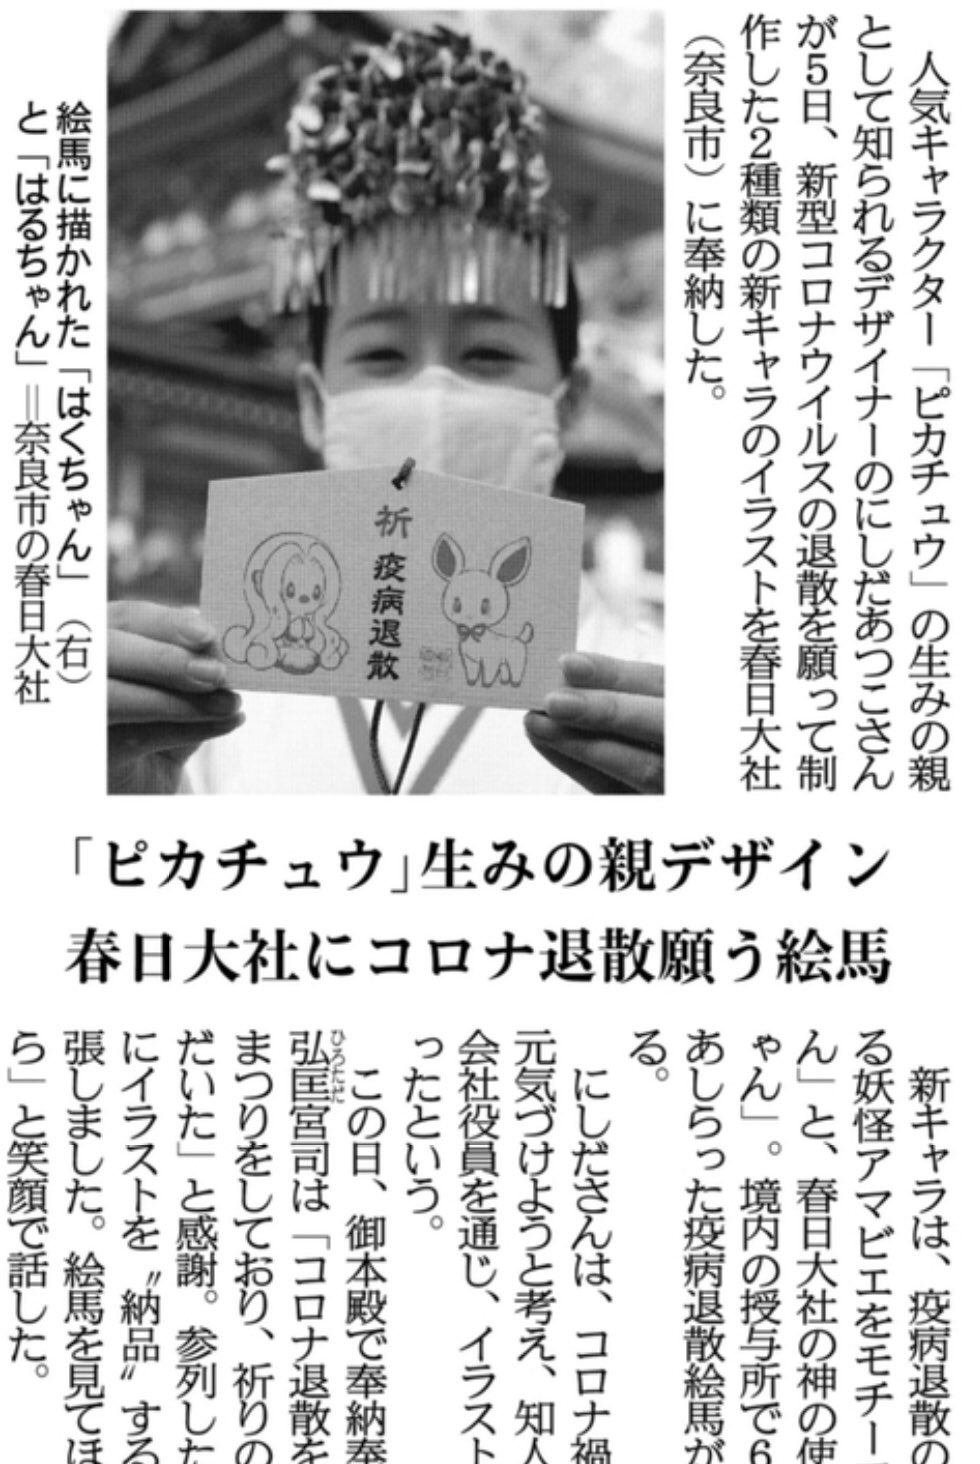 「ピカチュウ」生みの親デザイン
春日大社にコロナ退散願う絵馬
人気キャラクター「ピカチュウ」の生みの親
として知られるデザイナーのにしだあつこさん
が5日、新型コロナウイルスの退散を願って制
作した2種類の新キャラのイラストを春日大社
(奈良市)に奉納した。
祈 疫病退散
絵馬に描かれた「はくちゃん」(右)
と「はるちゃん」=奈良市の春日大社
新キャラは、疫病退散の
る妖怪アマビエをモチー
ん」と、春日大社の神の使
ゃん」。境内の授与所で6
あしらった疫病退散絵馬が
る。
にしださんは、コロナ禍
元気づけようと考え、知人
会社役員を通じ、イラスト
ったという。
この日、御本殿で奉納奉
弘匡宮司は「コロナ退散を
ひろただ
まつりをしており、祈りの
だいた」と感謝。参列した
にイラストを〝納品〟する
張しました。絵馬を見てほ
ら」と笑顔で話した。